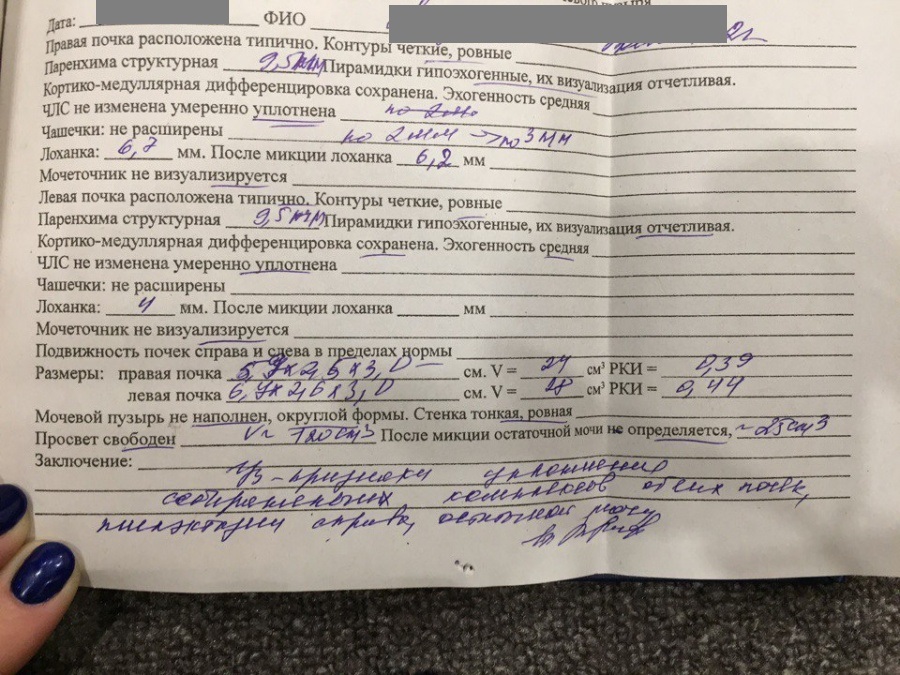 Дата: ФИО
Правая почка расположена типично. Контуры четкие, ровные
Паренхима структурная 9,5мм Пирамидки гипоэхогенные, их визуализация отчетливая.
Кортико-медуллярная дифференцировка сохранена. Эхогенность средняя
ЧЛС не изменена умеренно уплотнена по 2мм
Чашечки: не расширены по 2мм → по 3мм
Лоханка: 6,7 мм. После микции лоханка 6,2 мм
Мочеточник не визуализируется
Левая почка расположена типично. Контуры четкие, ровные
Паренхима структурная 9,5мм Пирамидки гипоэхогенные, их визуализация отчетливая.
Кортико-медуллярная дифференцировка сохранена. Эхогенность средняя
ЧЛС не изменена умеренно уплотнена
Чашечки: не расширены
Лоханка: 4 мм. После микции лоханка мм
Мочеточник не визуализируется
Подвижность почек справа и слева в пределах нормы
Размеры: правая почка см. V = 24 см³ РКИ = 0,39
левая почка см. V = 28 см³ РКИ = 0,44
Мочевой пузырь не наполнен, округлой формы. Стенка тонкая, ровная
Просвет свободен V~ см³ После микции остаточной мочи не определяется, ~25см3
Заключение: УЗ-признаки уплотнения
собирательных комплексов обеих почек,
пиелэктазии справа, остаточной мочи